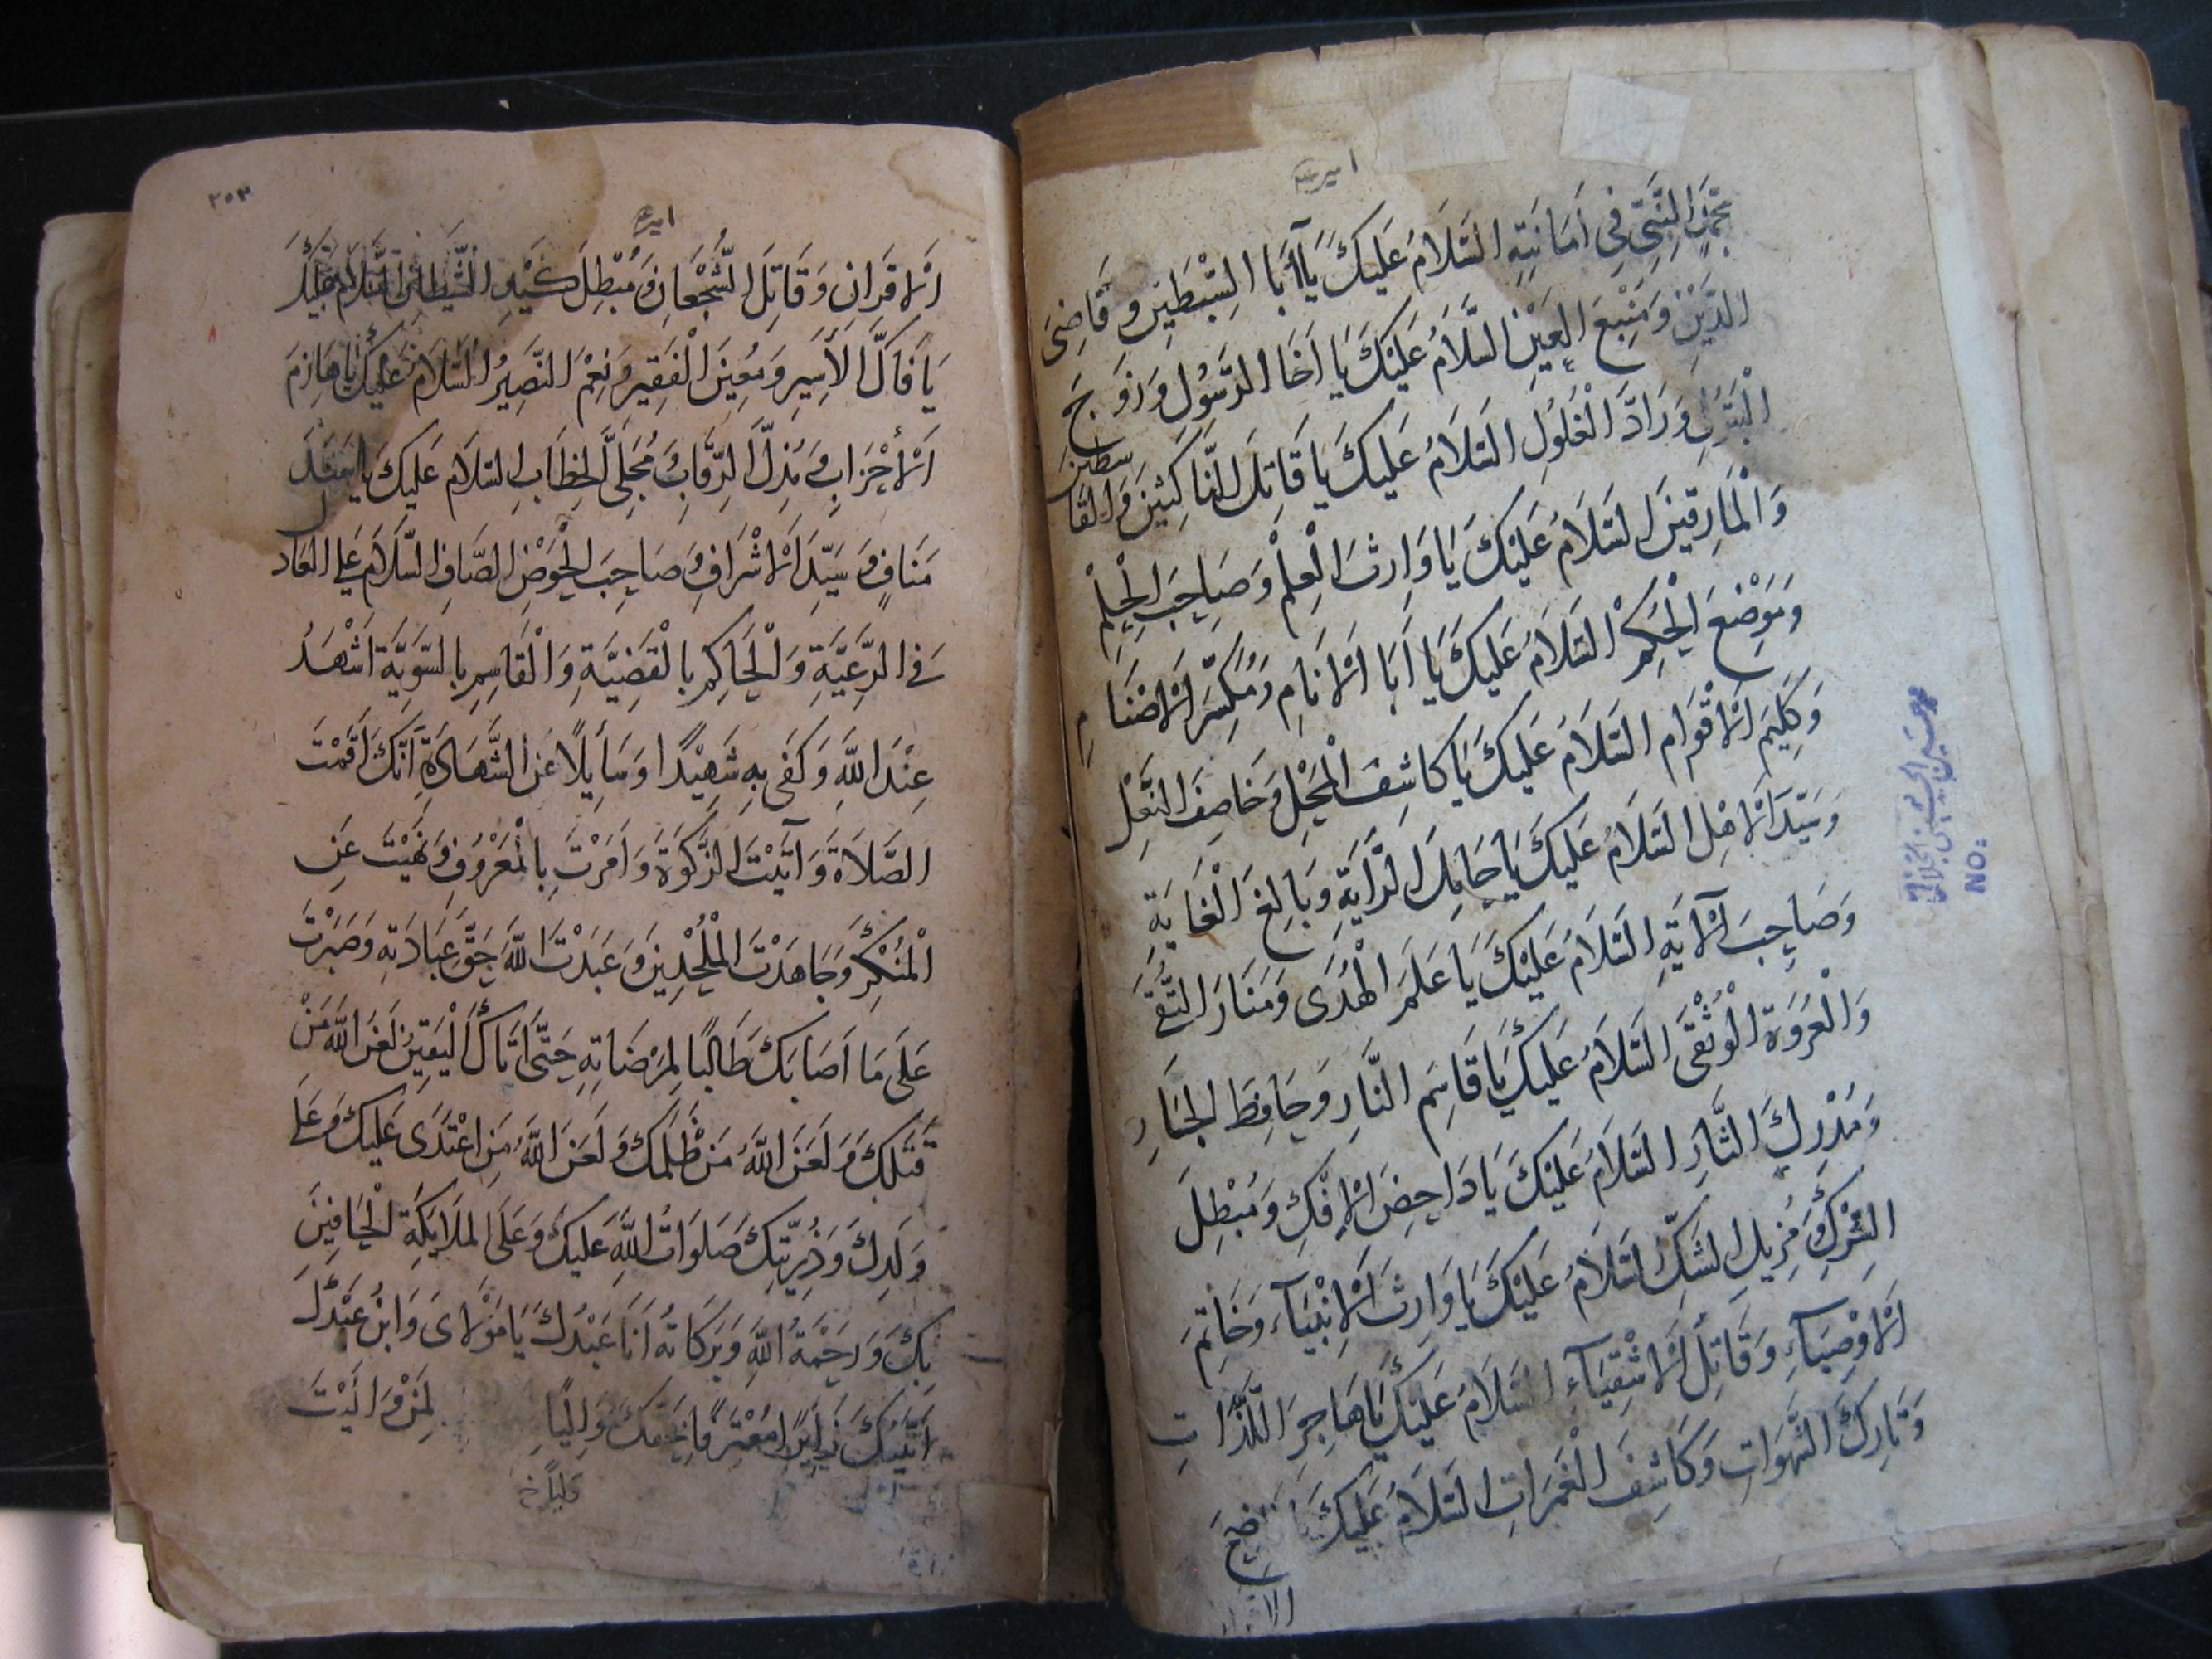 امير
النَّبِيِّ فِي اَمَانَتِهِ السَّلَامُ عَلَيْكَ يَا اَبَا السِّبْطَيْنِ وَقَاضِيَ
الدَّيْنِ وَمَنْبَعَ الْعَيْنِ السَّلَامُ عَلَيْكَ يَا اَخَا الرَّسُولِ وَزَوْجَ
الْبَتُولِ وَرَادَّ الْغُلُولِ السَّلَامُ عَلَيْكَ يَا قَاتِلَ النَّاكِثِينَ وَالْقَاسِطِينَ
وَالْمَارِقِينَ السَّلَامُ عَلَيْكَ يَا وَارِثَ الْعِلْمِ وَصَاحِبَ الْحِلْمِ
وَمَوْضِعَ الْحُكْمِ السَّلَامُ عَلَيْكَ يَا اَبَا الْاَنَامِ وَمُكَسِّرَ الْاَصْنَامِ
وَكَلِيمَ الْاَقْوَامِ السَّلَامُ عَلَيْكَ يَا كَاشِفَ الْمَحْلِ وَخَاصِفَ النَّعْلِ
وَسَيِّدَ الْاَهْلِ السَّلَامُ عَلَيْكَ يَا حَامِلَ الرَّايَةِ وَبَالِغَ الْغَايَةِ
وَصَاحِبَ الْآيَةِ السَّلَامُ عَلَيْكَ يَا عَلَمَ الْهُدَى وَمَنَارَ التُّقَى
وَالْعُرْوَةِ الْوُثْقَى السَّلَامُ عَلَيْكَ يَا قَاسِمَ النَّارِ وَحَافِظَ الْجَارِ
وَمُدْرِكَ الثَّارِ السَّلَامُ عَلَيْكَ يَا دَاحِضَ الْاِفْكِ وَمُبْطِلَ
الشِّرْكِ وَمُزِيلَ الشَّكِّ السَّلَامُ عَلَيْكَ يَا وَارِثَ الْاَنْبِيَآءِ وَخَاتِمَ
الْاَوْصِيَآءِ وَقَاتِلَ الْاَشْقِيَآءِ السَّلَامُ عَلَيْكَ يَا هَاجِرَ اللَّذَّاتِ
وَتَارِكَ الشَّهَوَاتِ وَكَاشِفَ الْغَمَرَاتِ السَّلَامُ عَلَيْكَ
NO:
٢٥٣
امير
الْاَقْرَانِ وَقَاتِلَ الشُّجْعَانِ وَمُبْطِلَ كَيْدِ الشَّيْطَانِ السَّلَامُ عَلَيْكَ
يَا فَاكَّ الْاَسِيرِ وَمُعِينَ الْفَقِيرِ وَنِعْمَ النَّصِيرُ السَّلَامُ عَلَيْكَ يَا هَازِمَ
الْاَحْزَابِ وَمُذِلَّ الرِّقَابِ وَمُجَلِّيَ الْخِطَابِ السَّلَامُ عَلَيْكَ يَا
مَنَافٍ وَسَيِّدَ الْاَشْرَافِ وَصَاحِبَ الْحَوْضِ الصَّافِ السَّلَامُ عَلَى الْعَادِلِ
فِي الرَّعِيَّةِ وَالْحَاكِمِ بِالْقَضِيَّةِ وَالْقَاسِمِ بِالسَّوِيَّةِ اَشْهَدُ
عِنْدَ اللهِ وَكَفَى بِهِ شَهِيدًا وَسَايِلًا عَنِ الشَّهَادَةِ اَنَّكَ اَقَمْتَ
الصَّلَاةَ وَآتَيْتَ الزَّكٰوةَ وَاَمَرْتَ بِالْمَعْرُوفِ وَنَهَيْتَ عَنِ
الْمُنْكَرِ وَجَاهَدْتَ الْمُلْحِدِينَ وَعَبَدْتَ اللهَ حَقَّ عِبَادَتِهِ وَصَبَرْتَ
عَلَى مَا اَصَابَكَ طَالِبًا لِمَرْضَاتِهِ حَتَّى اَتَاكَ الْيَقِينُ لَعَنَ اللهُ مَنْ
قَتَلَكَ وَلَعَنَ اللهُ مَنْ ظَلَمَكَ وَلَعَنَ اللهُ مَنِ اعْتَدَى عَلَيْكَ وَعَلَى
وَلَدِكَ وَذُرِّيَّتِكَ صَلَوَاتُ اللهِ عَلَيْكَ وَعَلَى الْمَلَايِكَةِ الْحَافِينَ
بِكَ وَرَحْمَةُ اللهِ وَبَرَكَاتُهُ اَنَا عَبْدُكَ يَا مَوْلَايَ وَابْنُ عَبْدِكَ
اَتَيْتُكَ زَايِرًا مُعْتَرِفًا بِحَقِّكَ مُوَالِيًا لِمَنْ وَالَيْتَ